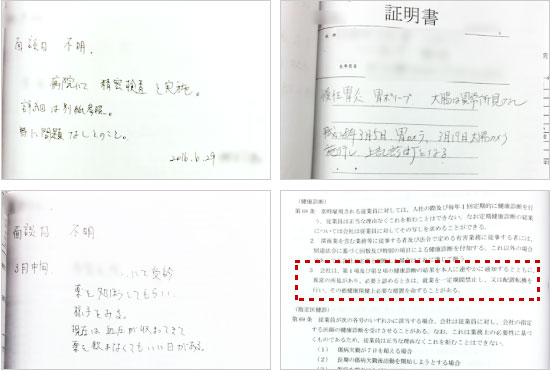 面談日 不明.
病院にて 精密検査を実施。
詳細は別紙参照。
特に問題なしとのこと。
2016.6.29
証明書
住所
生年月日
慢性胃炎 胃ポリープ 大腸は異常所見なし
平成28年3月5日、胃カメラ、3月19日大腸カメラ
施行し、上記診断となる
面談日 不明
3月中旬、
にて受診
薬を処方してもらい、
様子をみる。
現在は血圧が
薬を飲まなくてもいい日がある。
(健康診断)
第68条 常時雇用される従業員に対しては、入社の際及び毎年1回定期的に健康診断を行
う。従業員は正当な理由なくこれを拒むことはできない。なお定期健康診断の結果
については会社は従業員に対しその写しを求めることができる。
2 深夜業を含む業務等に従事する者及び法令で定める有害業務に従事する者には、
3 会社は、第1項及び第2項の健康診断の結果を本人に速やかに通知するとともに、
異常の所見があり、必要と認めるときは、就業を一定期間禁止し、又は配置転換を
行い、その他健康保健上必要な措置を命ずることがある。
(指定医健診)
第69条 従業員が次の各号のいずれかに該当する場合、会社は従業員に対し、会社の指定
する医師の健康診断を受けさせることがある。なお、これは業務上の必要性に基づ
くものであるため、従業員は正当な理由なくこれを拒むことはできない。
(1) 傷病欠勤が7日を超える場合
(2) 長期の傷病欠勤後出勤を開始しようとする場合